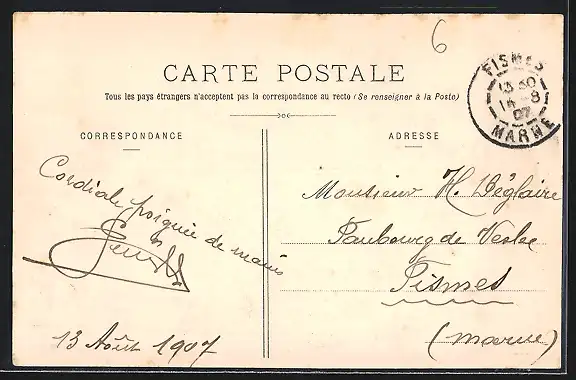 6
CARTE POSTALE
Tous les pays étrangers n'acceptent pas la correspondance au recto (Se renseigner à la Poste)
FISMES
13 30
14 - 8
07
MARNE
CORRESPONDANCE
Cordiale poignée de mains
13 Août 1907
ADRESSE
Monsieur H. Déglaire
Faubourg de Vesle
Fismes
(Marne)